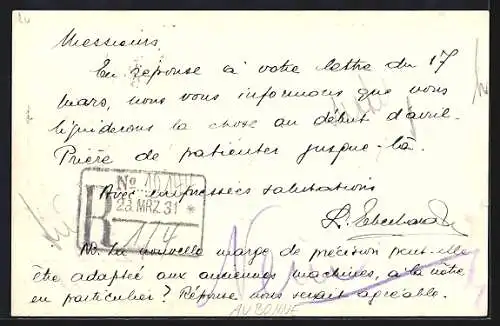 Messieurs,
En réponse à votre lettre du 17
mars, nous vous informons que nous
liquiderons la chose au début d'avril.
Prière de patienter jusque-là.
Avec empressées salutations
Nº
23. MRZ. 31 *
R
1/4
NB. La nouvelle marge de précision peut-elle
être adaptée aux anciennes machines, à la nôtre
en particulier? Réponse nous serait agréable.
AUBONNE